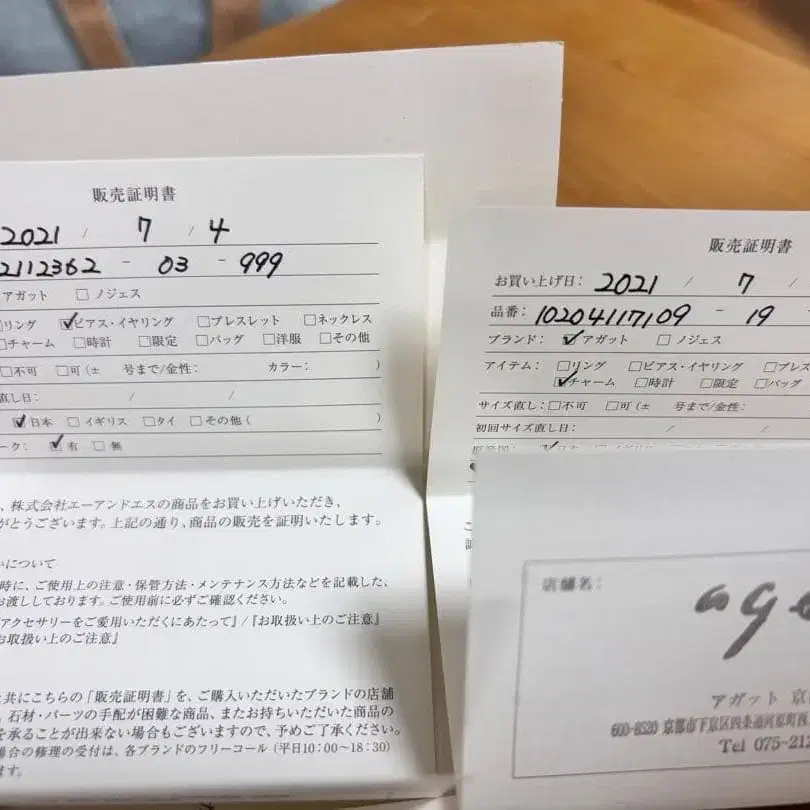 販売証明書
2021 / 7 / 4
2112362 - 03 - 999
アガット □ ノジェス
リング ☑ピアス・イヤリング □ブレスレット □ネックレス
□チャーム □時計 □限定 □バッグ □洋服 □その他
□不可 □可(± 号まで/金性: カラー: )
直し日: / /
☑日本 □イギリス □タイ □その他( )
ーク: ☑有 □無
、株式会社エーアンドエスの商品をお買い上げいただき、
がとうございます。上記の通り、商品の販売を証明いたします。
いについて
時に、ご使用上の注意・保管方法・メンテナンス方法などを記載した、
お渡ししております。ご使用前に必ずご確認ください。
アクセサリーをご愛用いただくにあたって』/『お取扱い上のご注意』
お取扱い上のご注意』
と共にこちらの「販売証明書」を、ご購入いただいたブランドの店舗
。石材・パーツの手配が困難な商品、またお持ちいただいた商品の
を承ることが出来ない場合もございますので、予めご了承ください。
場合の修理の受付は、各ブランドのフリーコール(平日10:00〜18:30)
ます。
販売証明書
お買い上げ日: 2021 / 7 /
品番: 10204117109 - 19
ブランド: ☑アガット □ ノジェス
アイテム: □リング □ピアス・イヤリング □ブレス
☑チャーム □時計 □限定 □バッグ
サイズ直し: □不可 □可(± 号まで/金性:
初回サイズ直し日: / /
店舗名:
ag
アガット 京
600-8520 京都市下京区四条通河原町西
Tel 075-212